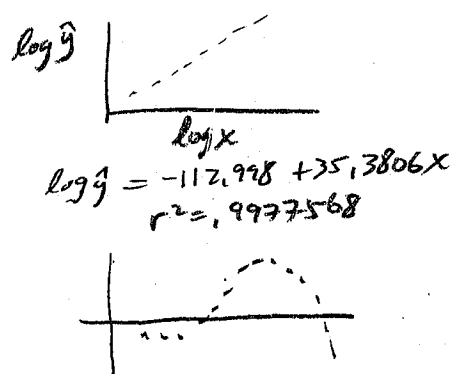 log ŷ
log x
log ŷ = -112,998 +35,3806x
r² = ,9977568